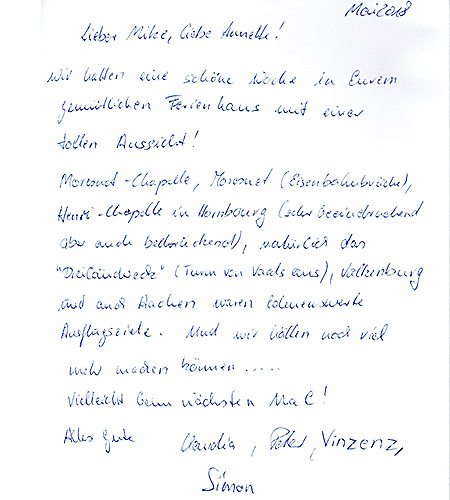 Mai 2018
Lieber Mike, liebe Annette!
Wir hatten eine schöne Woche in Eurem
gemütlichen Ferienhaus mit einer
tollen Aussicht!
Moresnet-Chapelle, Moresnet (Eisenbahnbrücke),
Henri-Chapelle in Hombourg (sehr beeindruckend
aber auch bedrückend), natürlich das
"Dreiländereck" (Turm von Vaals aus), Valkenburg
und auch Aachen waren lohnenswerte
Ausflugsziele. Und wir hätten noch viel
mehr machen können.....
Vielleicht beim nächsten Mal!
Alles Gute Claudia, Peter, Vinzenz,
Simon